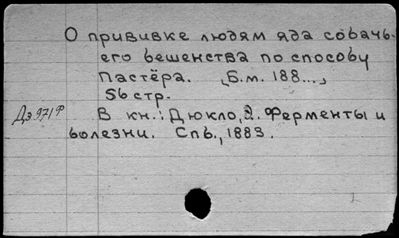 О прививке людям яда собачь-
его бешенства по способу
Пастёра. [Б.м. 188...]
56 стр.
Дэ 971ф В кн.: Дюкло, Э. Ферменты и
болезни. Спб., 1883.